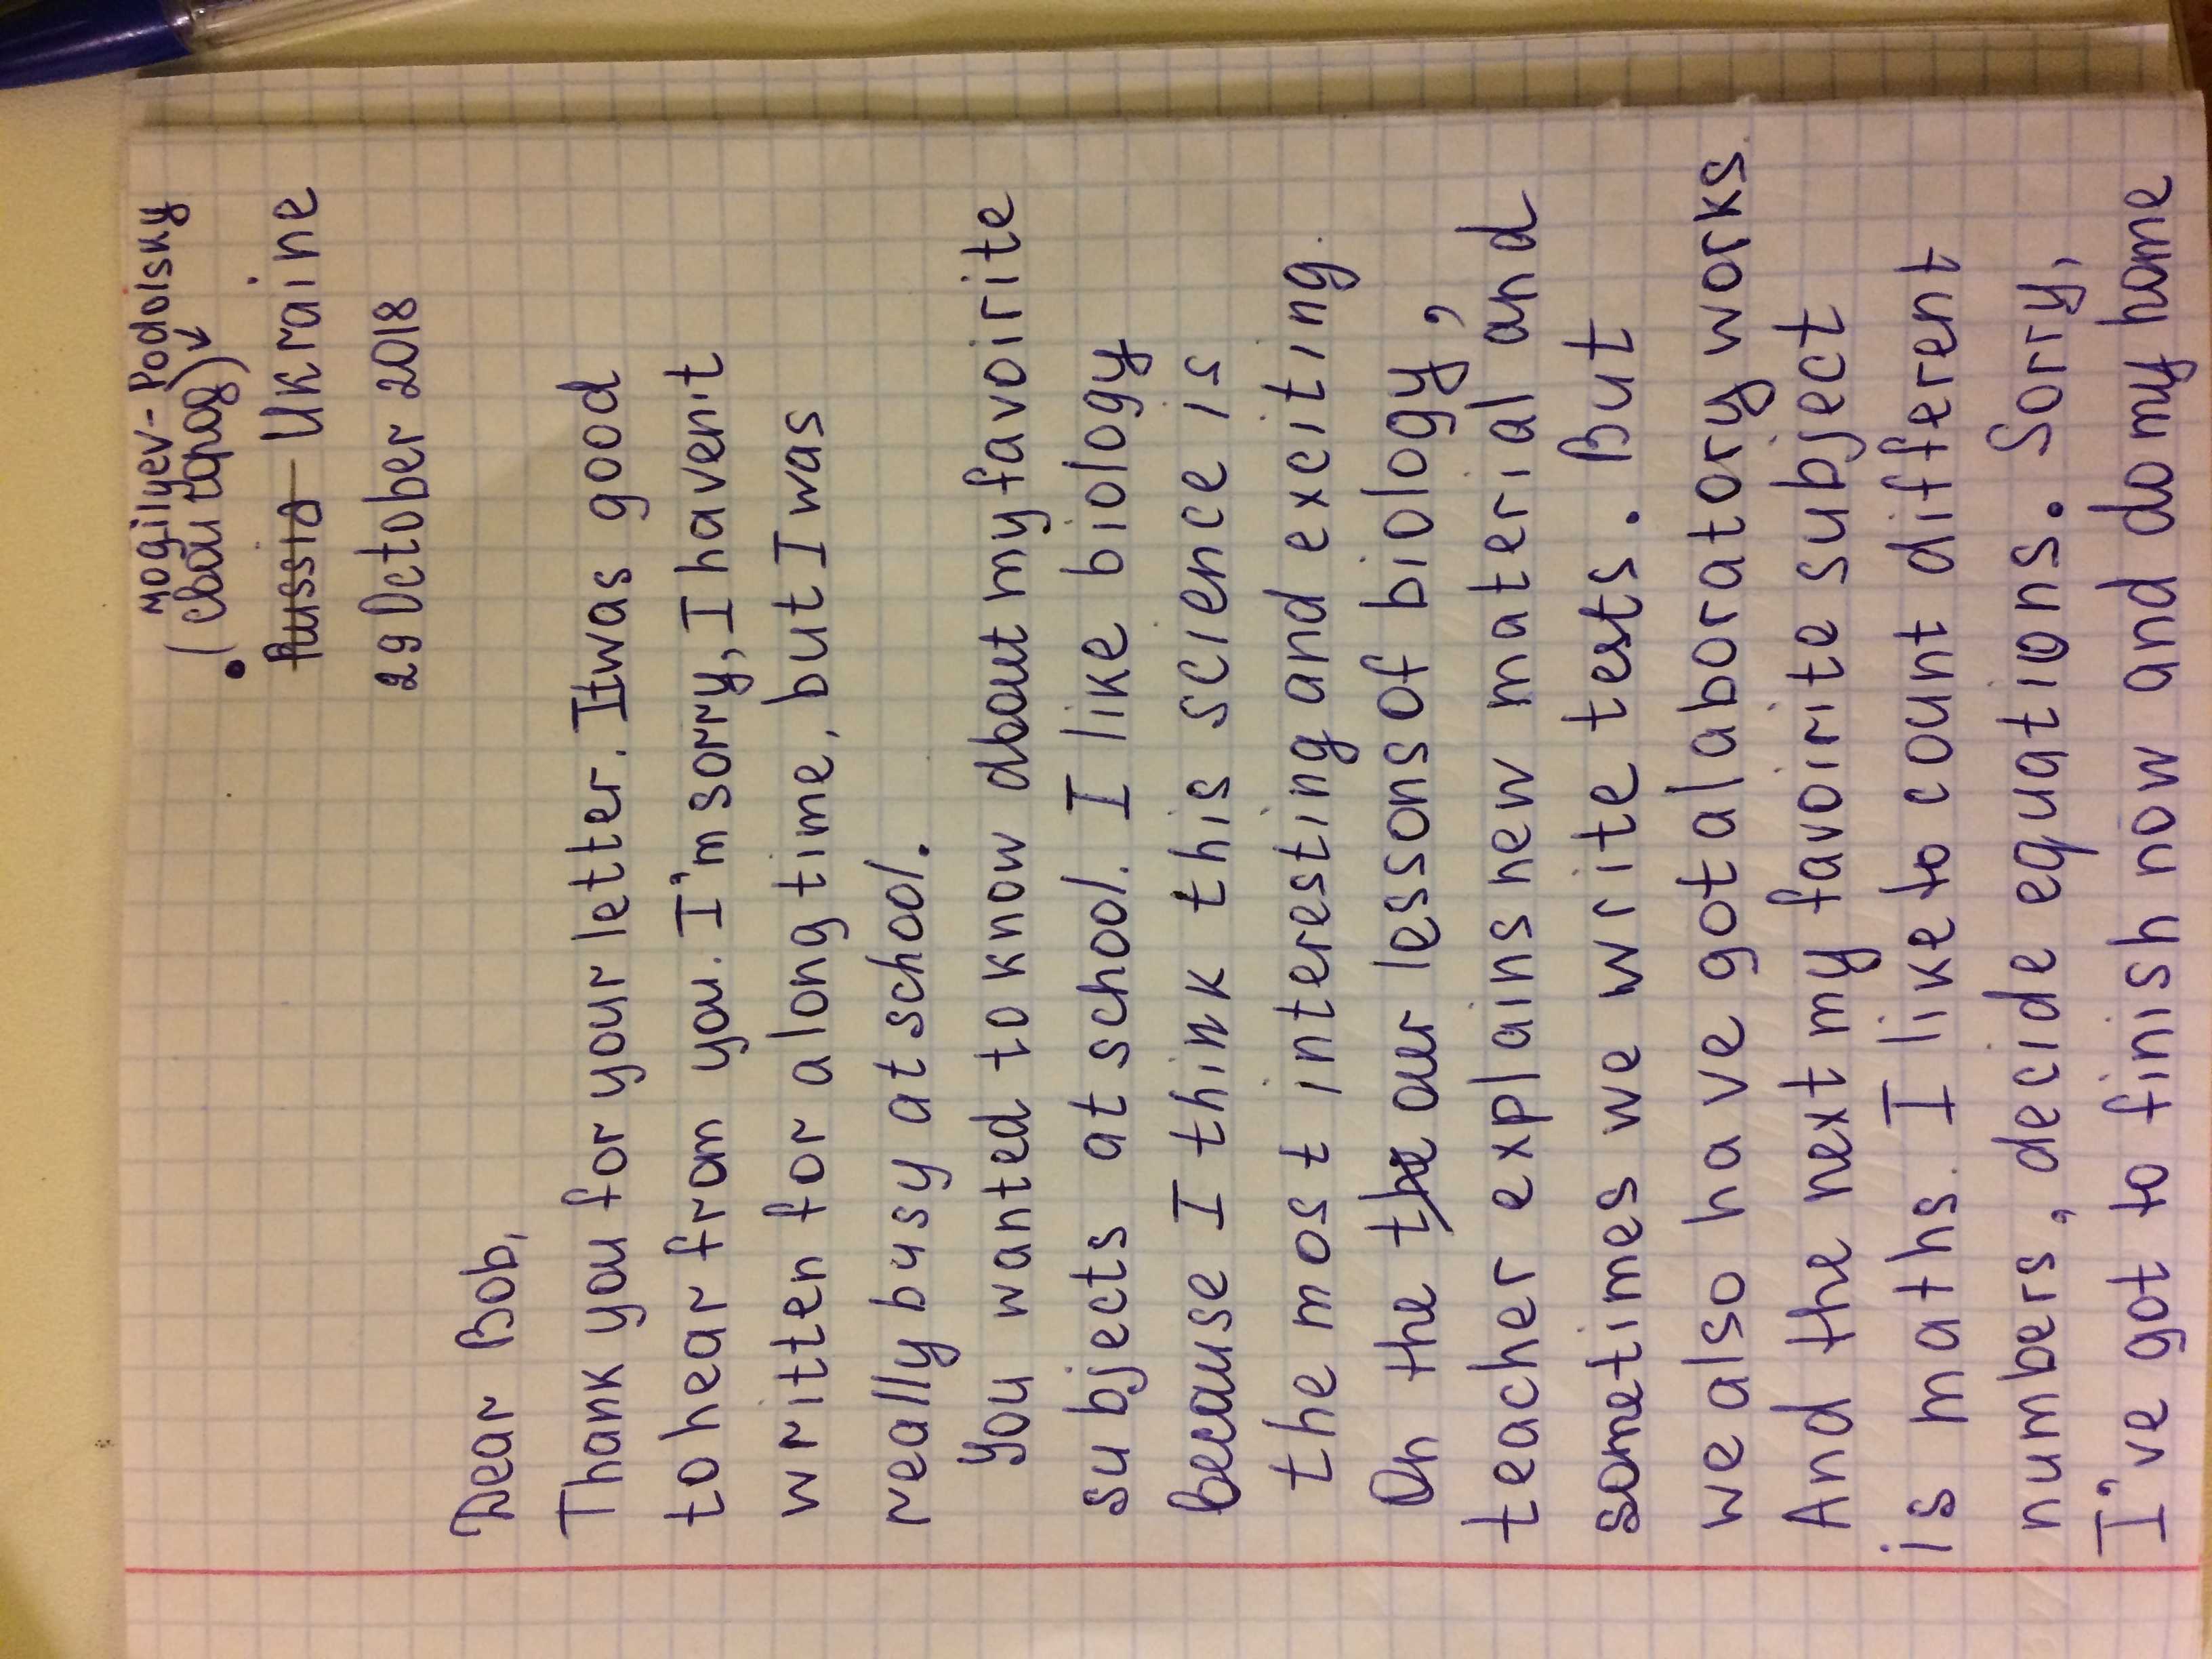 Mogilyev-Podolsky
(свой город)
Russia Ukraine
29 October 2018
Dear Bob,
Thank you for your letter. It was good
to hear from you. I'm sorry, I haven't
written for a long time, but I was
really busy at school.
You wanted to know about my favoirite
subjects at school. I like biology
because I think this science is
the most interesting and exciting.
On the the our lessons of biology,
teacher explains new material and
sometimes we write tests. But
we also have got laboratory works.
And the next my favoirite subject
is maths. I like to count different
numbers, decide equations. Sorry,
I've got to finish now and do my home